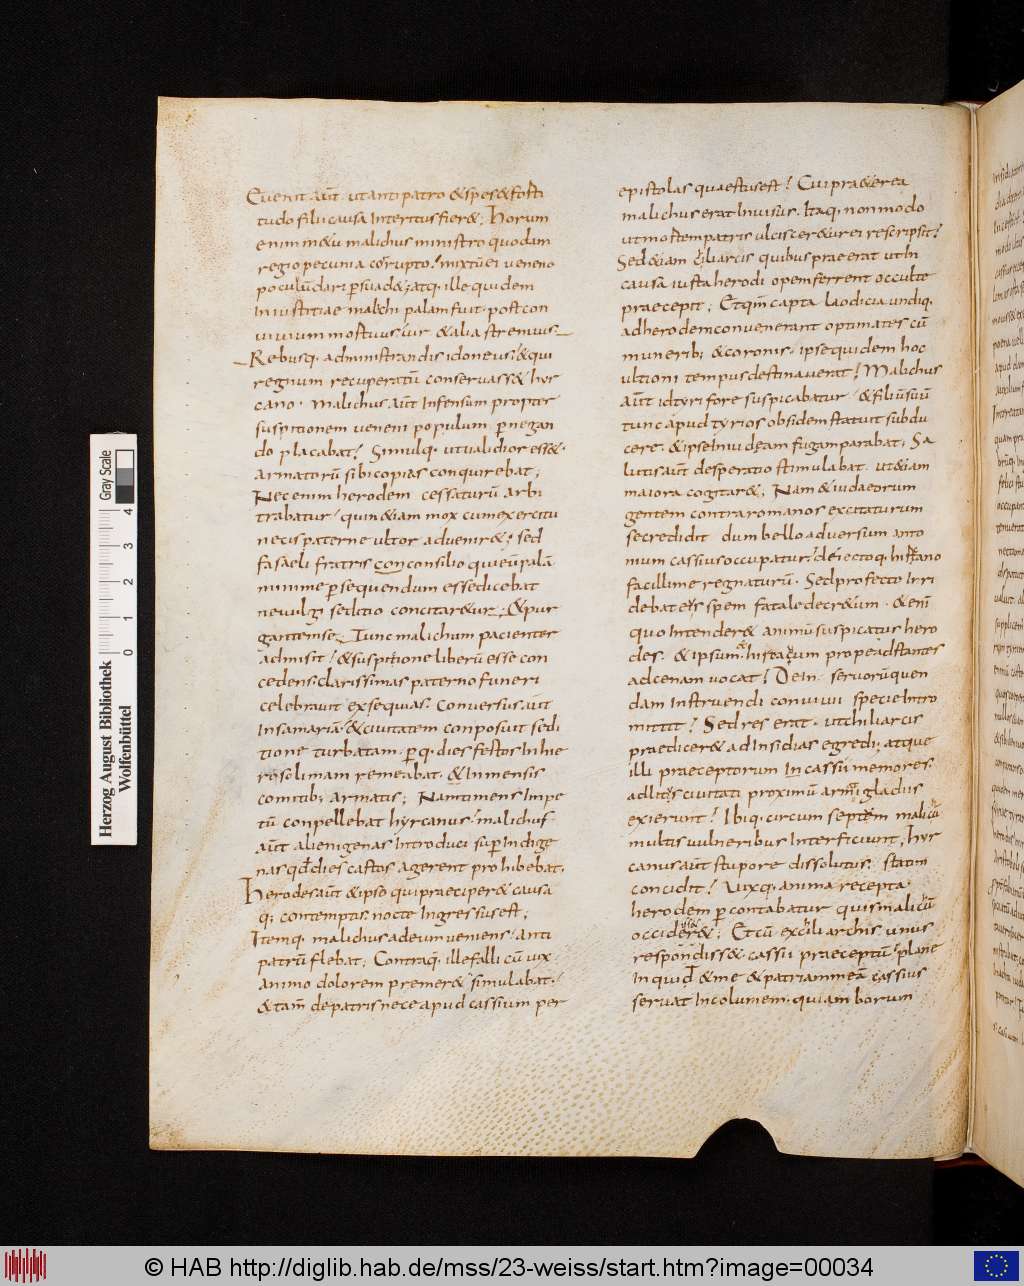 Euenit aut ut antipatro & spes & festi
tudo filii causa Interitus fier&; horum
enim in&u malichus ministro quodam
regio pecunia corrupto! mixtū ei ueneno
poculū dari p̲suad&; atq· ille quidem
In iustitiae malichi palam fuit· post con
uiuium mortuus;
Rebusq· administrandis idoneus! & qui
regnum recuperatū conseruass& hyr
cano· malichus aūt Infensum propter
suspitionem ueneni populum p̲negan
do placabat! Simulq· ut ualidior ess&·
armatorū sibi copias conquirebat;
Nec enim herodem cessaturū arbi
trabatur· quin &iam mox cum exercitu
necis paterne ultor adueniret&! sed
fasaeli fratris con consilio qui eū palā
minime p̲sequendum esse dicebat
ne uulgi seditio concitar&ur; & pur
gantem se; Tunc malichum pacienter
admisit! & suspitione liberū esse con
cedens. clarissimas paterno funeri
celebrauit exsequias· Conuersus aūt
In samariā· & ciuitatem conposuit sedi
tione turbatam· p̲q· dies festos In hie
rosolimam remeabat· & In mensis
comitib; armatis; Nam timens Impe
tū conpellebat hyrcanus· malichus
aūt alienigenas Introduci sup̲ Indige
nas qđ dies castos agerent prohibebat·
herodes aūt & ipso qui praeciper& causa
q; contemptus nocte Ingressus est;
Itemq· malichus ad eum ueniens· anti
patrū flebat; Contraq· ille falli cū uix
animo dolorem premer& simulabat·
& tam̄ de patris nece apud cassium per
epistolas quaestus est! Cui praeterea
malichus erat Inuisus. Itaq· non modo
ut mortem patris ulcisceretur ei rescripsit!
Sed &iam chiliarcis quibus praeerat ut In
causa iusta herodi opem ferrent occulte
praecepit; Et qm̄ capta laodicia undiq·
ad herodem conuenerant optimates cū
munerib; & coronis· ipse quidem hoc
ultioni tempus destinauerat! Malichus
aūt id tyri fore suspicabatur· & filiū suū
tunc apud tyrios obsidem statuit subdu
cere· & ipse In iudeam fugam parabat; Sa
lutis aūt desperatio stimulabat· ut &iam
maiora cogitar&; Nam & iudaeorum
gentem contra romanos excitaturum
se credidit dum bello aduersum anto
nium cassius occupatur! deiectoq· hircano
facillime regnaturū· Sed profecto Irri
debat eius spem fatale decr&um· & enī
quo Intender& animū suspicatus hero
des· & ipsum & hircanum prope adstantes
ad cenam uocat! Dein seruorū quen
dam Instruendi conuiuii specie Intro
mittit! Sed res erat· ut chiliarcis
praedicer& ad Insidias egredi; atque
illi praeceptorum In cassii memores·
ad litus ciuitati proximū armati gladiis
exierunt! Ibiq· circum septem malicū
multis uulneribus Interficiunt, hyr
canus aūt stupore dissolutus· statim
concidit! Uixq· anima recepta
herodem p̲contabatur quis malicū
occider& iussisset; Et cū ex chiliarchis unus
respondiss& cassii praeceptū! plane
Inquid & me & patriam meā cassius
seruat Incolumem· qui amborum
© HAB http://diglib.hab.de/mss/23-weiss/start.htm?image=00034
Herzog August Bibliothek
Wolfenbüttel
0 1 2 3 4
Gray Scale